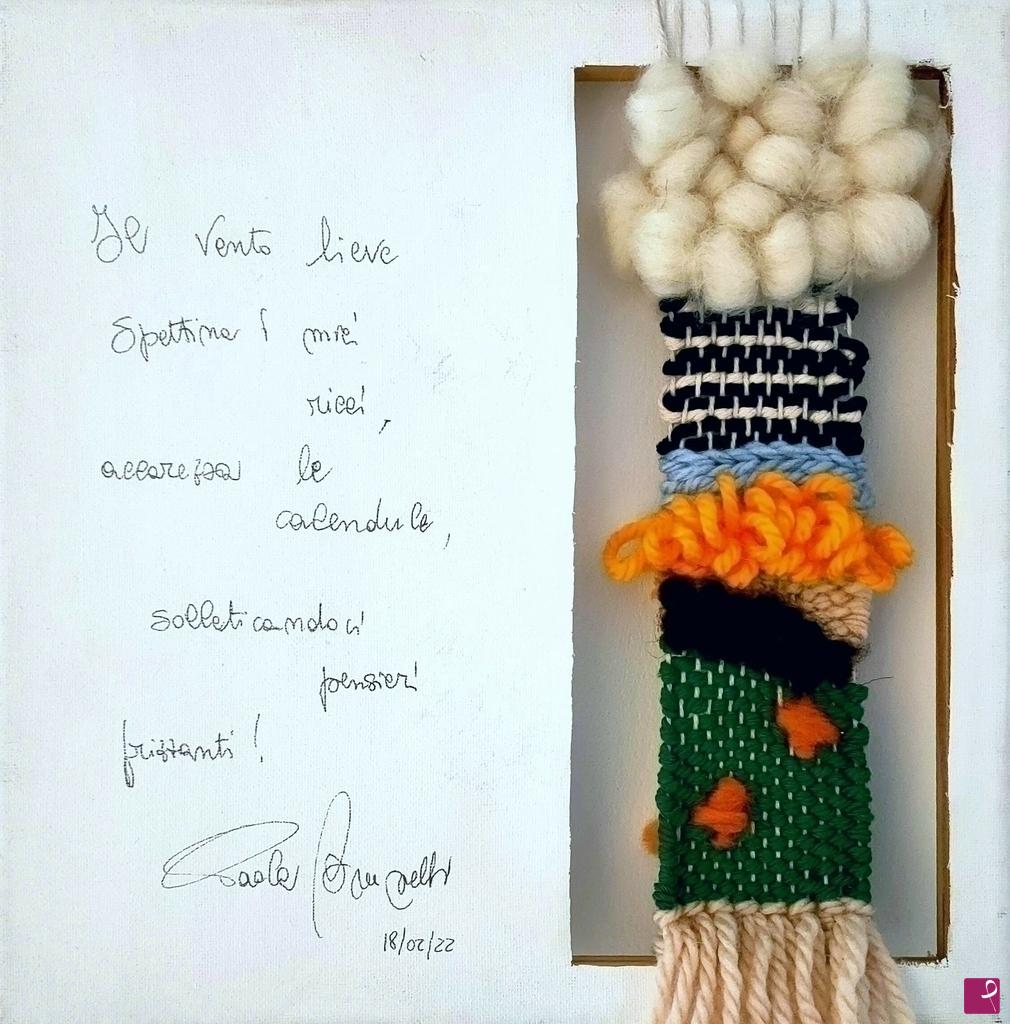 Il vento lieve
spettina i miei
ricci,
accarezza le
calendule,
solleticandoci
pensieri
frizzanti!
Paola
18/02/22